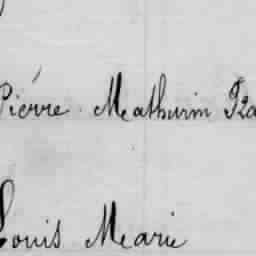 Pierre Mathurin Ra
Louis Marie